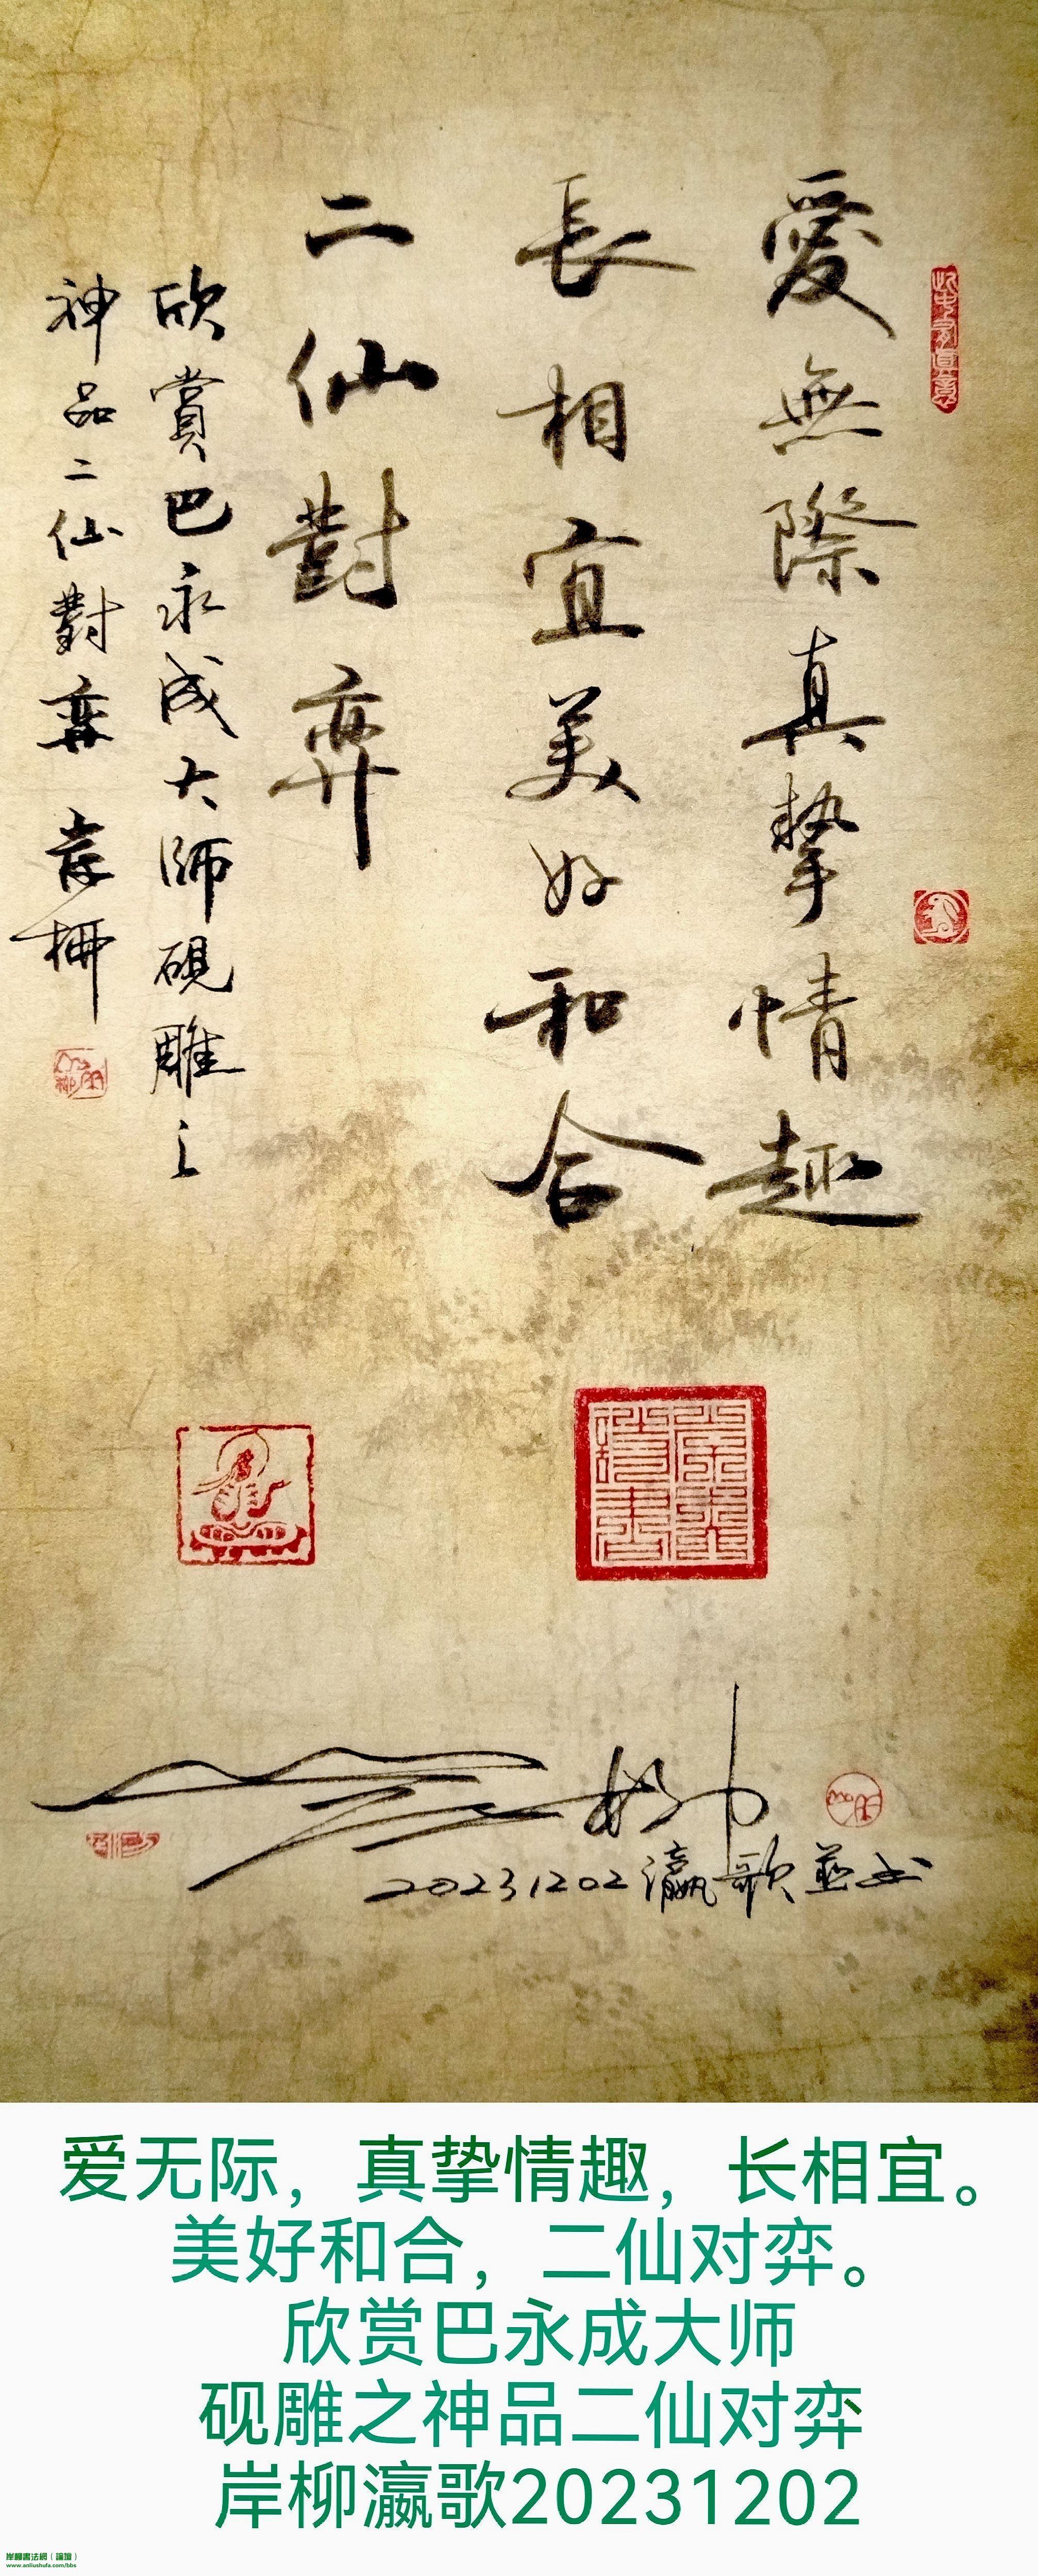 愛無際真摯情趣
長相宜美好和合
二仙對弈
欣賞巴永成大師硯雕之
神品二仙對弈 岸柳
此中有真意
20231202瀛歌並书
爱无际，真挚情趣，长相宜。
美好和合，二仙对弈。
欣赏巴永成大师
砚雕之神品二仙对弈
岸柳瀛歌20231202
岸柳書法網（論壇）
www.anliushufa.com/bbs